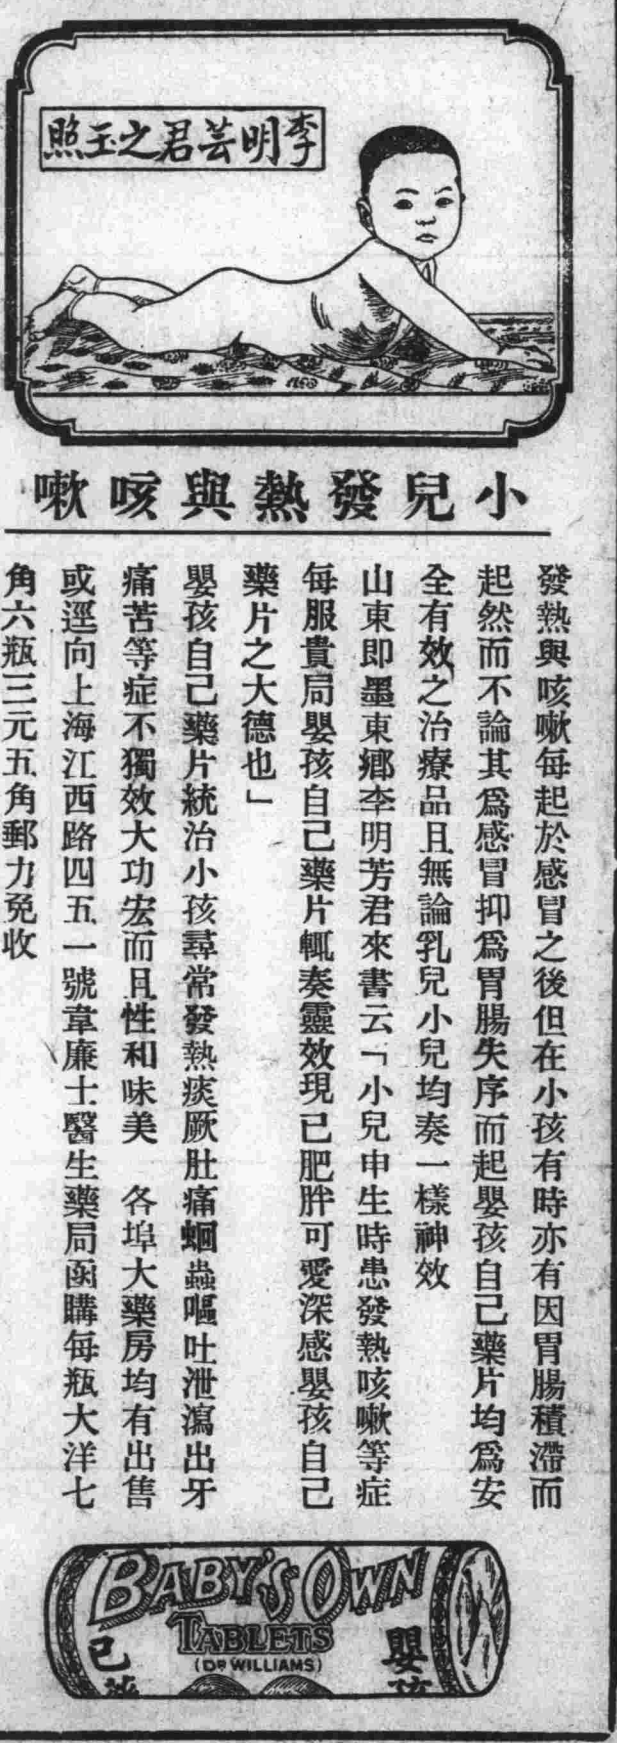 李明芸君之玉照
小兒發熱與咳嗽
發熱與咳嗽每起於感冒之後但在小孩有時亦有因胃腸積滯而
起然而不論其爲感冒抑爲胃腸失序而起嬰孩自己藥片均爲安
全有效之治療品且無論乳兒小兒均奏一樣神效
山東即墨東鄉李明芳君來書云「小兒申生時患發熱咳嗽等症
每服貴局嬰孩自己藥片輒奏靈效現已肥胖可愛深感嬰孩自己
藥片之大德也」
嬰孩自己藥片統治小孩尋常發熱痰厥肚痛蛔蟲嘔吐泄瀉出牙
痛苦等症不獨效大功宏而且性和味美 各埠大藥房均有出售
或逕向上海江西路四五一號韋廉士醫生藥局函購每瓶大洋七
角六瓶三元五角郵力免收
BABY'S OWN
TABLETS
(DR WILLIAMS)
嬰孩
己